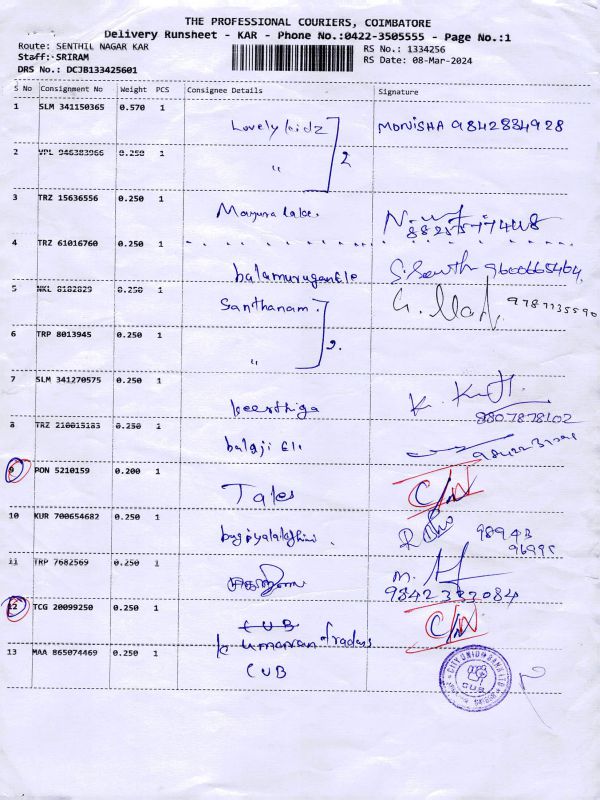 THE PROFESSIONAL COURIERS, COIMBATORE
Delivery Runsheet - KAR - Phone No.:0422-3505555 - Page No.:1
Route: SENTHIL NAGAR KAR
RS No.: 1334256
Staff: SRIRAM
RS Date: 08-Mar-2024
DRS No.: DCJB133425601
S No Consignment No Weight PCS Consignee Details Signature
1 SLM 341150365 0.570 1 Lovely kidz MONISHA 9842884928
2 VPL 946383966 0.250 1 " 2
3 TRZ 15636556 0.250 1 Mayura lake.
4 TRZ 61016760 0.250 1
balamurugan Ele 9600665464
5 NKL 8182829 0.250 1 Santhanam. 9787735590
6 TRP 8013945 0.250 1 " 2.
7 SLM 341270575 0.250 1 keerthiga 8807878102
8 TRZ 210015183 0.250 1 balaji Ele
9 PON 5210159 0.200 1 Tales C/N
10 KUR 700654682 0.250 1 98943
11 TRP 7682569 0.250 1 9342333084
12 TCG 20099250 0.250 1 CUB C/N
Kumaran Traders
13 MAA 865074469 0.250 1 CUB
CITY UNION BANK LTD
CUB